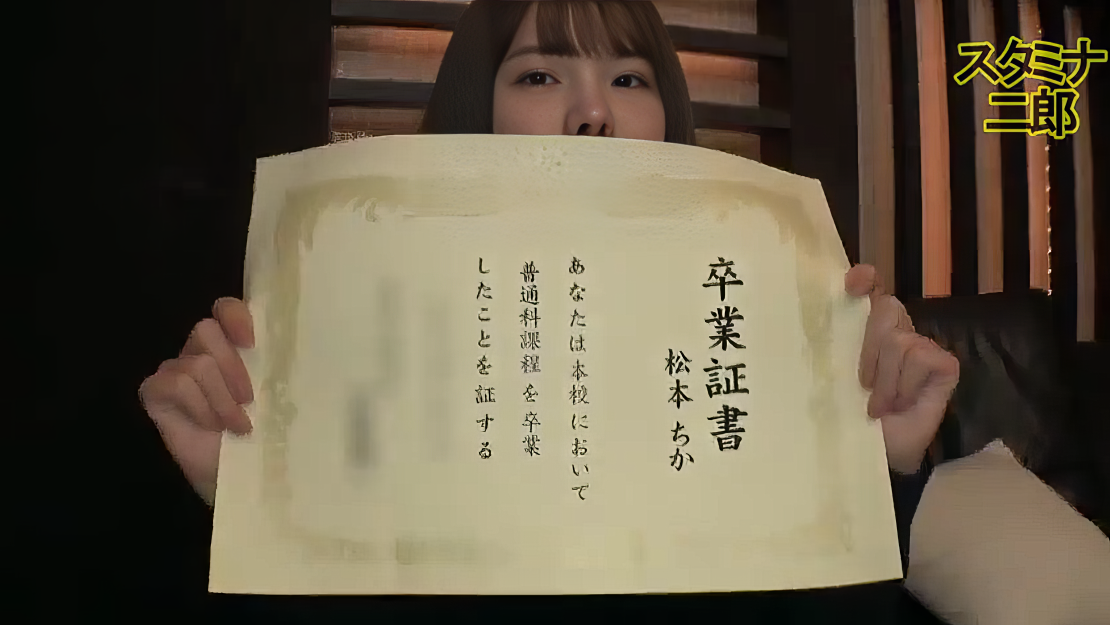 卒業証書
松本 ちか
あなたは本校において
普通科課程を卒業
したことを証する
スタミナ
二郎